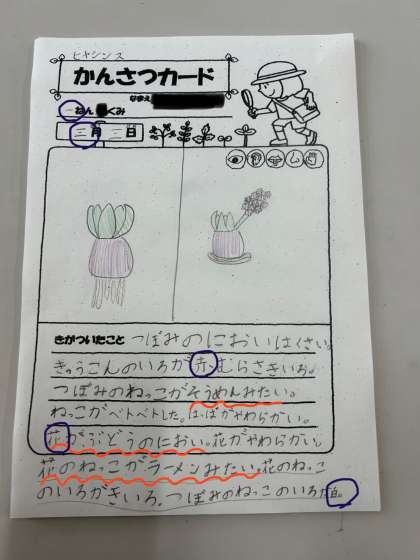 ヒヤシンス
かんさつカード
なまえ
一ねん くみ
三月 三日
きがついたこと つぼみのにおいはくさい。
きゅうこんのいろが赤、むらさきいろ。
つぼみのねっこがそうめんみたい。
ねっこがベトベトした。はっぱがやわらかい。
花が、ぶどうのにおい。花がやわらかい。
花のねっこがラーメンみたい。花のねっこ
のいろがきいろ。つぼみのねっこのいろが白。